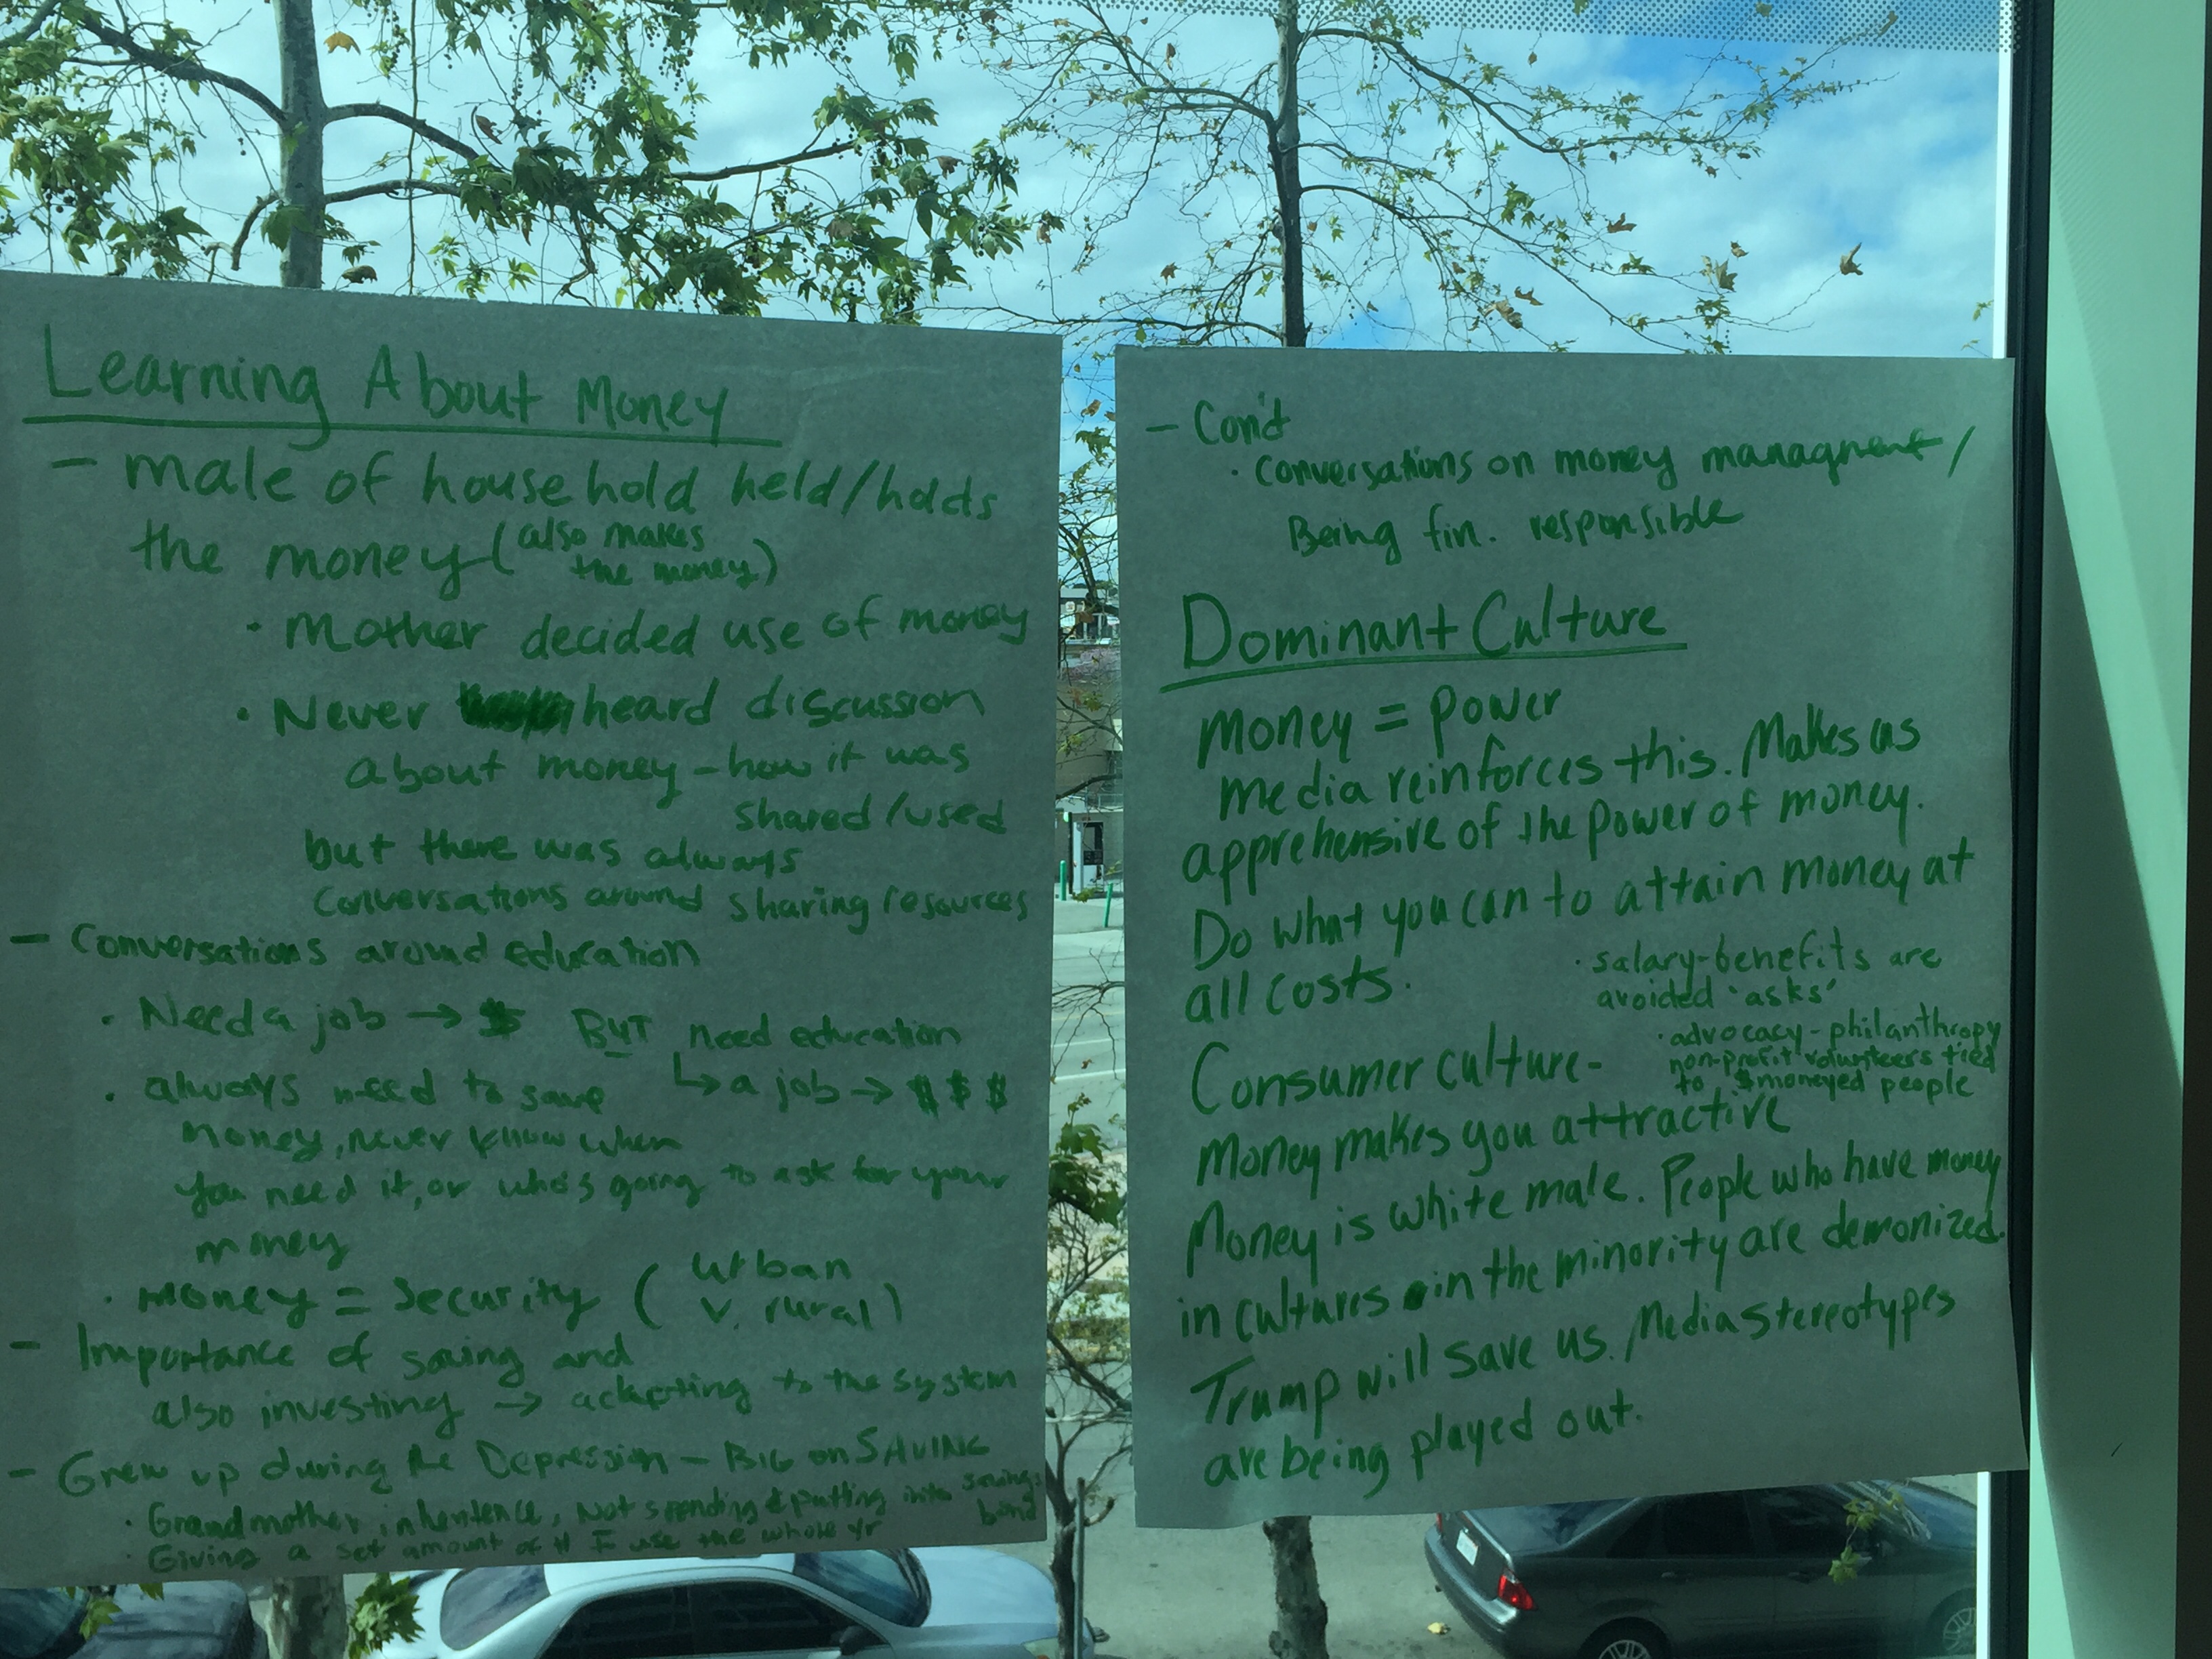 Learning About Money
- male of household held/holds
the money (also makes
the money)
· Mother decided use of money
· Never heard discussion
about money - how it was
shared/used
but there was always
conversations around sharing resources
- Conversations around education
· Need a job → $ BUT need education
↳ a job → $$$
· always need to save
money, never know when
you need it, or who's going to ask for your
money
· money = security (urban
v. rural)
- Importance of saving and
also investing → adapting to the system
- Grew up during the Depression - BIG on SAVING
· Grandmother inheritence, Not spending & putting into savings
bond
· Giving a set amount of use the whole yr
- Con'd
· conversations on money managment/
Being fin. responsible
Dominant Culture
money = power
media reinforces this. Makes us
apprehensive of the power of money.
Do what you can to attain money at
all costs.
· salary-benefits are
avoided 'asks'
· advocacy - philanthropy
non-profit volunteers tied
to $ moneyed people
Consumer culture-
money makes you attractive
Money is white male. People who have money
in cultures in the minority are demonized.
Trump will save us. Media stereotypes
are being played out.